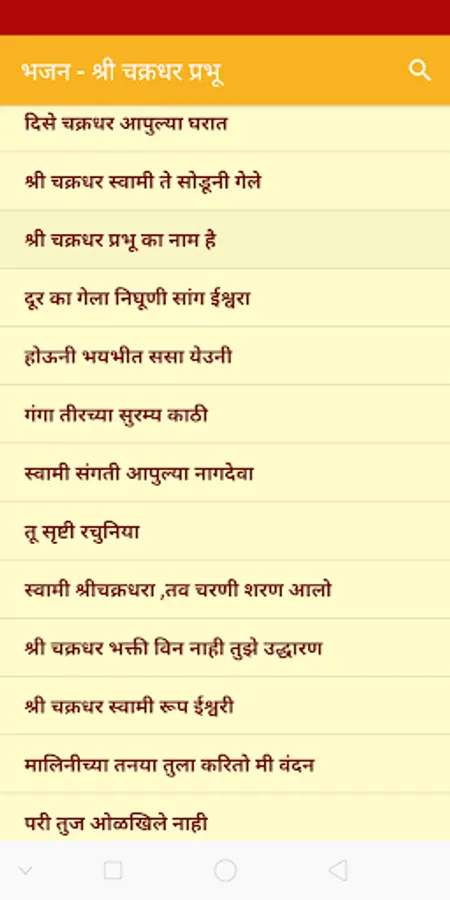 भजन - श्री चक्रधर प्रभू
दिसे चक्रधर आपुल्या घरात
श्री चक्रधर स्वामी ते सोडूनी गेले
श्री चक्रधर प्रभू का नाम है
दूर का गेला निघूणी सांग ईश्वरा
होऊनी भयभीत ससा येउनी
गंगा तीरच्या सुरम्य काठी
स्वामी संगती आपुल्या नागदेवा
तू सृष्टी रचुनिया
स्वामी श्रीचक्रधरा ,तव चरणी शरण आलो
श्री चक्रधर भक्ती विन नाही तुझे उद्धारण
श्री चक्रधर स्वामी रूप ईश्वरी
मालिनीच्या तनया तुला करितो मी वंदन
परी तुज ओळखिले नाही